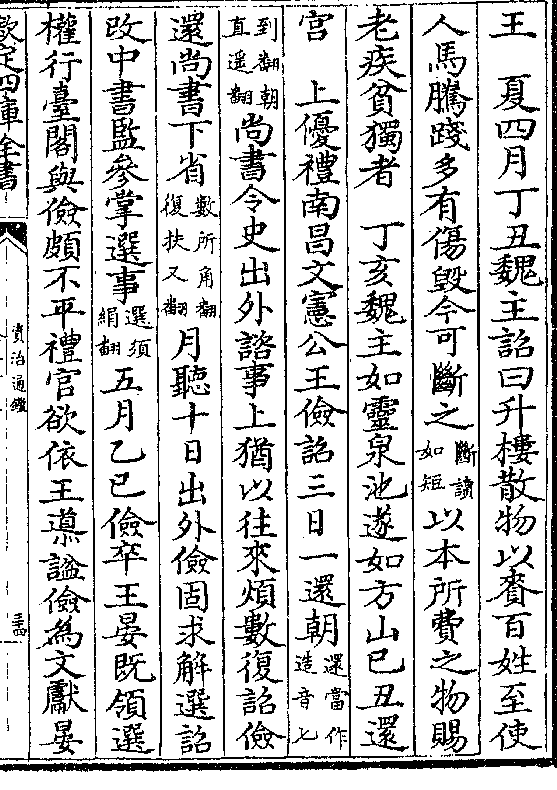 王　夏四月丁丑魏主詔曰升樓散物以賚百姓至使
人馬騰踐多有傷毀今可斷之斷讀如短以本所費之物賜
老疾貧獨者　丁亥魏主如靈泉池遂如方山已丑還
宮　上優禮南昌文憲公王儉詔三日一還朝還當作造音七
到翻朝直遥翻尚書令史出外諮事上猶以往來煩數復詔儉
還尚書下省數所角翻復扶又翻月聽十日出外儉固求解選詔
改中書監參掌選事選須絹翻五月乙已儉卒王晏既領選
權行臺閣與儉頗不平禮官欲依王導諡儉爲文獻晏
欽定四庫全書
資治通鑑